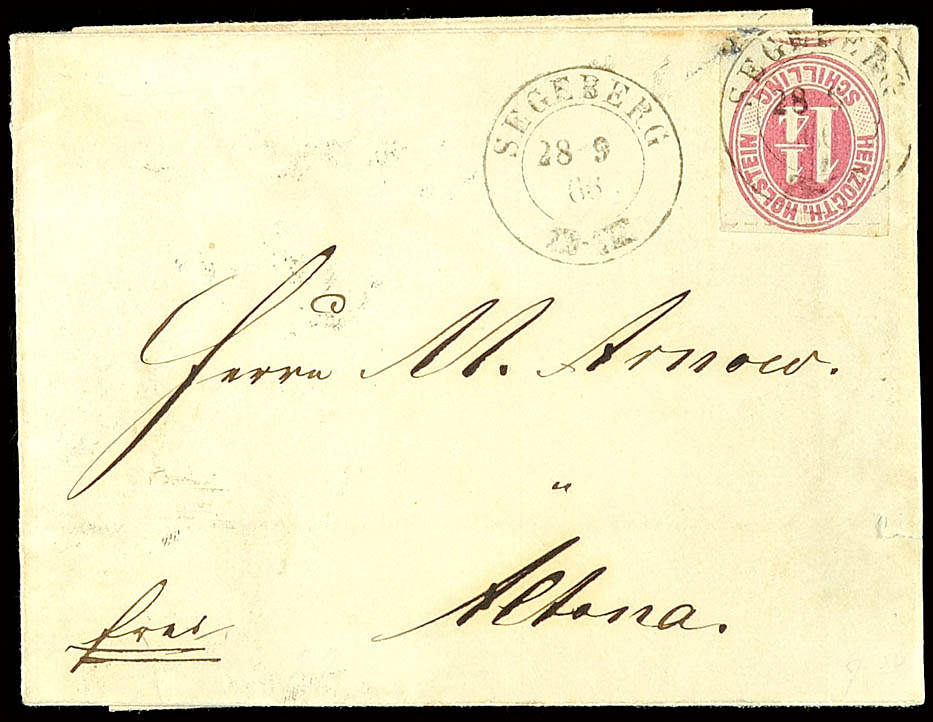 SEGEBERG
28 9
68
SEGEBERG
28
HERZOGTH. HOLSTEIN
SCHILLING
1 1/4
Herrn M. Arnow.
"
Altona.
frei